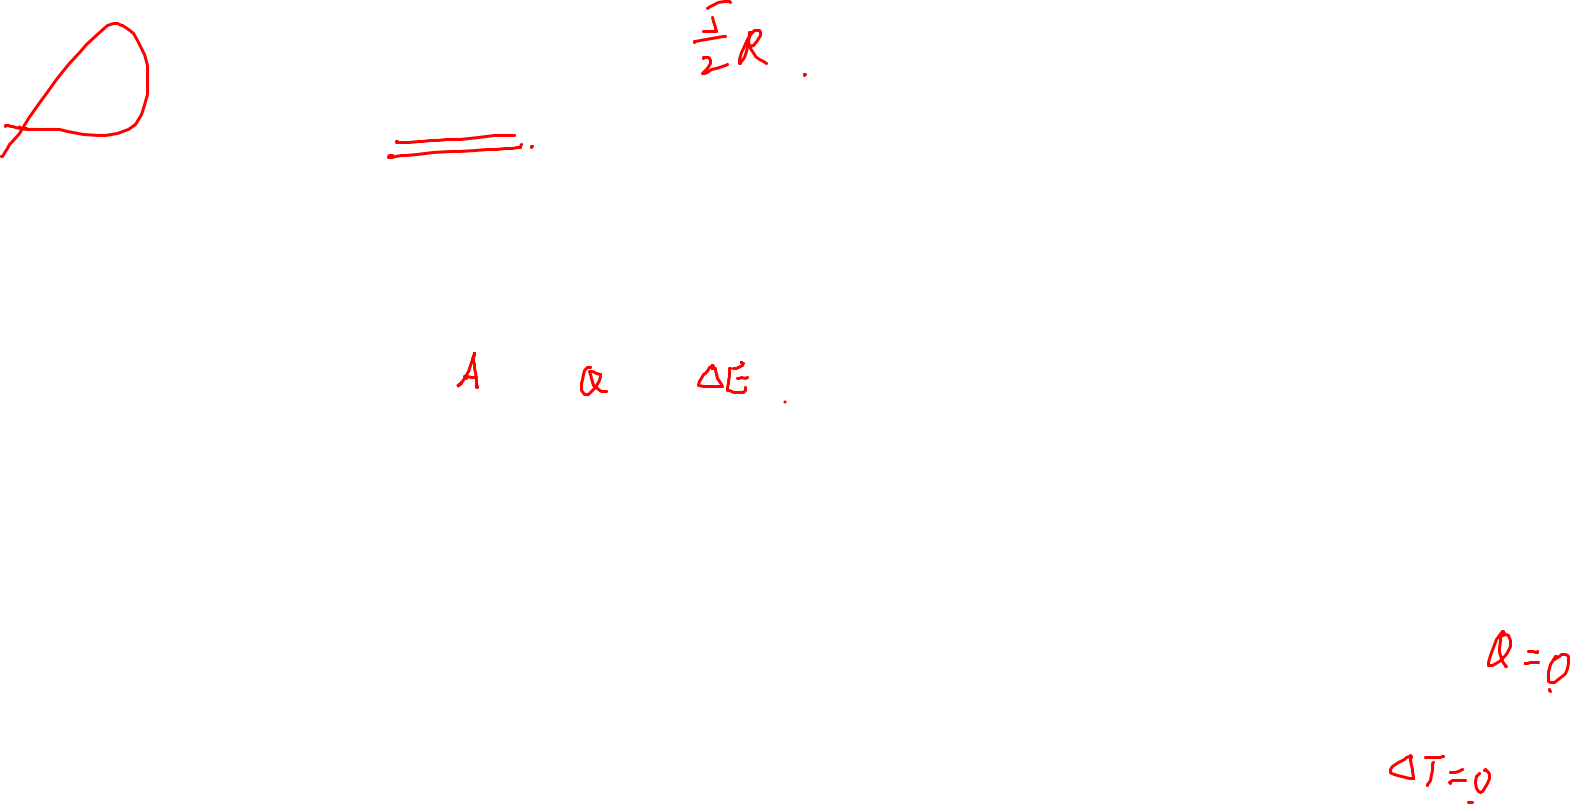 5/2 R.
A Q ΔE.
Q=0
ΔT=0